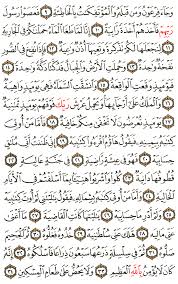 وَجَآءَ فِرْعَوْنُ وَمَن قَبْلَهُۥ وَٱلْمُؤْتَفِكَٰتُ بِٱلْخَاطِئَةِ ٩ فَعَصَوْا۟ رَسُولَ
رَبِّهِمْ فَأَخَذَهُمْ أَخْذَةً رَّابِيَةً ١٠ إِنَّا لَمَّا طَغَا ٱلْمَآءُ حَمَلْنَٰكُمْ فِى ٱلْجَارِيَةِ
١١ لِنَجْعَلَهَا لَكُمْ تَذْكِرَةً وَتَعِيَهَآ أُذُنٌ وَٰعِيَةٌ ١٢ فَإِذَا نُفِخَ فِى ٱلصُّورِ
نَفْخَةٌ وَٰحِدَةٌ ١٣ وَحُمِلَتِ ٱلْأَرْضُ وَٱلْجِبَالُ فَدُكَّتَا دَكَّةً وَٰحِدَةً ١٤
فَيَوْمَئِذٍ وَقَعَتِ ٱلْوَاقِعَةُ ١٥ وَٱنشَقَّتِ ٱلسَّمَآءُ فَهِىَ يَوْمَئِذٍ وَاهِيَةٌ
١٦ وَٱلْمَلَكُ عَلَىٰٓ أَرْجَآئِهَا وَيَحْمِلُ عَرْشَ رَبِّكَ فَوْقَهُمْ يَوْمَئِذٍ ثَمَٰنِيَةٌ
١٧ يَوْمَئِذٍ تُعْرَضُونَ لَا تَخْفَىٰ مِنكُمْ خَافِيَةٌ ١٨ فَأَمَّا مَنْ أُوتِىَ
كِتَٰبَهُۥ بِيَمِينِهِۦ فَيَقُولُ هَآؤُمُ ٱقْرَءُوا۟ كِتَٰبِيَهْ ١٩ إِنِّى ظَنَنتُ أَنِّى مُلَٰقٍ
حِسَابِيَهْ ٢٠ فَهُوَ فِى عِيشَةٍ رَّاضِيَةٍ ٢١ فِى جَنَّةٍ عَالِيَةٍ ٢٢
قُطُوفُهَا دَانِيَةٌ ٢٣ كُلُوا۟ وَٱشْرَبُوا۟ هَنِيٓـًٔۢا بِمَآ أَسْلَفْتُمْ فِى ٱلْأَيَّامِ
ٱلْخَالِيَةِ ٢٤ وَأَمَّا مَنْ أُوتِىَ كِتَٰبَهُۥ بِشِمَالِهِۦ فَيَقُولُ يَٰلَيْتَنِى لَمْ أُوتَ كِتَٰبِيَهْ
٢٥ وَلَمْ أَدْرِ مَا حِسَابِيَهْ ٢٦ يَٰلَيْتَهَا كَانَتِ ٱلْقَاضِيَةَ ٢٧ مَآ أَغْنَىٰ عَنِّى
مَالِيَهْ ٢٨ هَلَكَ عَنِّى سُلْطَٰنِيَهْ ٢٩ خُذُوهُ فَغُلُّوهُ ٣٠ ثُمَّ ٱلْجَحِيمَ
صَلُّوهُ ٣١ ثُمَّ فِى سِلْسِلَةٍ ذَرْعُهَا سَبْعُونَ ذِرَاعًا فَٱسْلُكُوهُ ٣٢ إِنَّهُۥ
كَانَ لَا يُؤْمِنُ بِٱللَّهِ ٱلْعَظِيمِ ٣٣ وَلَا يَحُضُّ عَلَىٰ طَعَامِ ٱلْمِسْكِينِ ٣٤